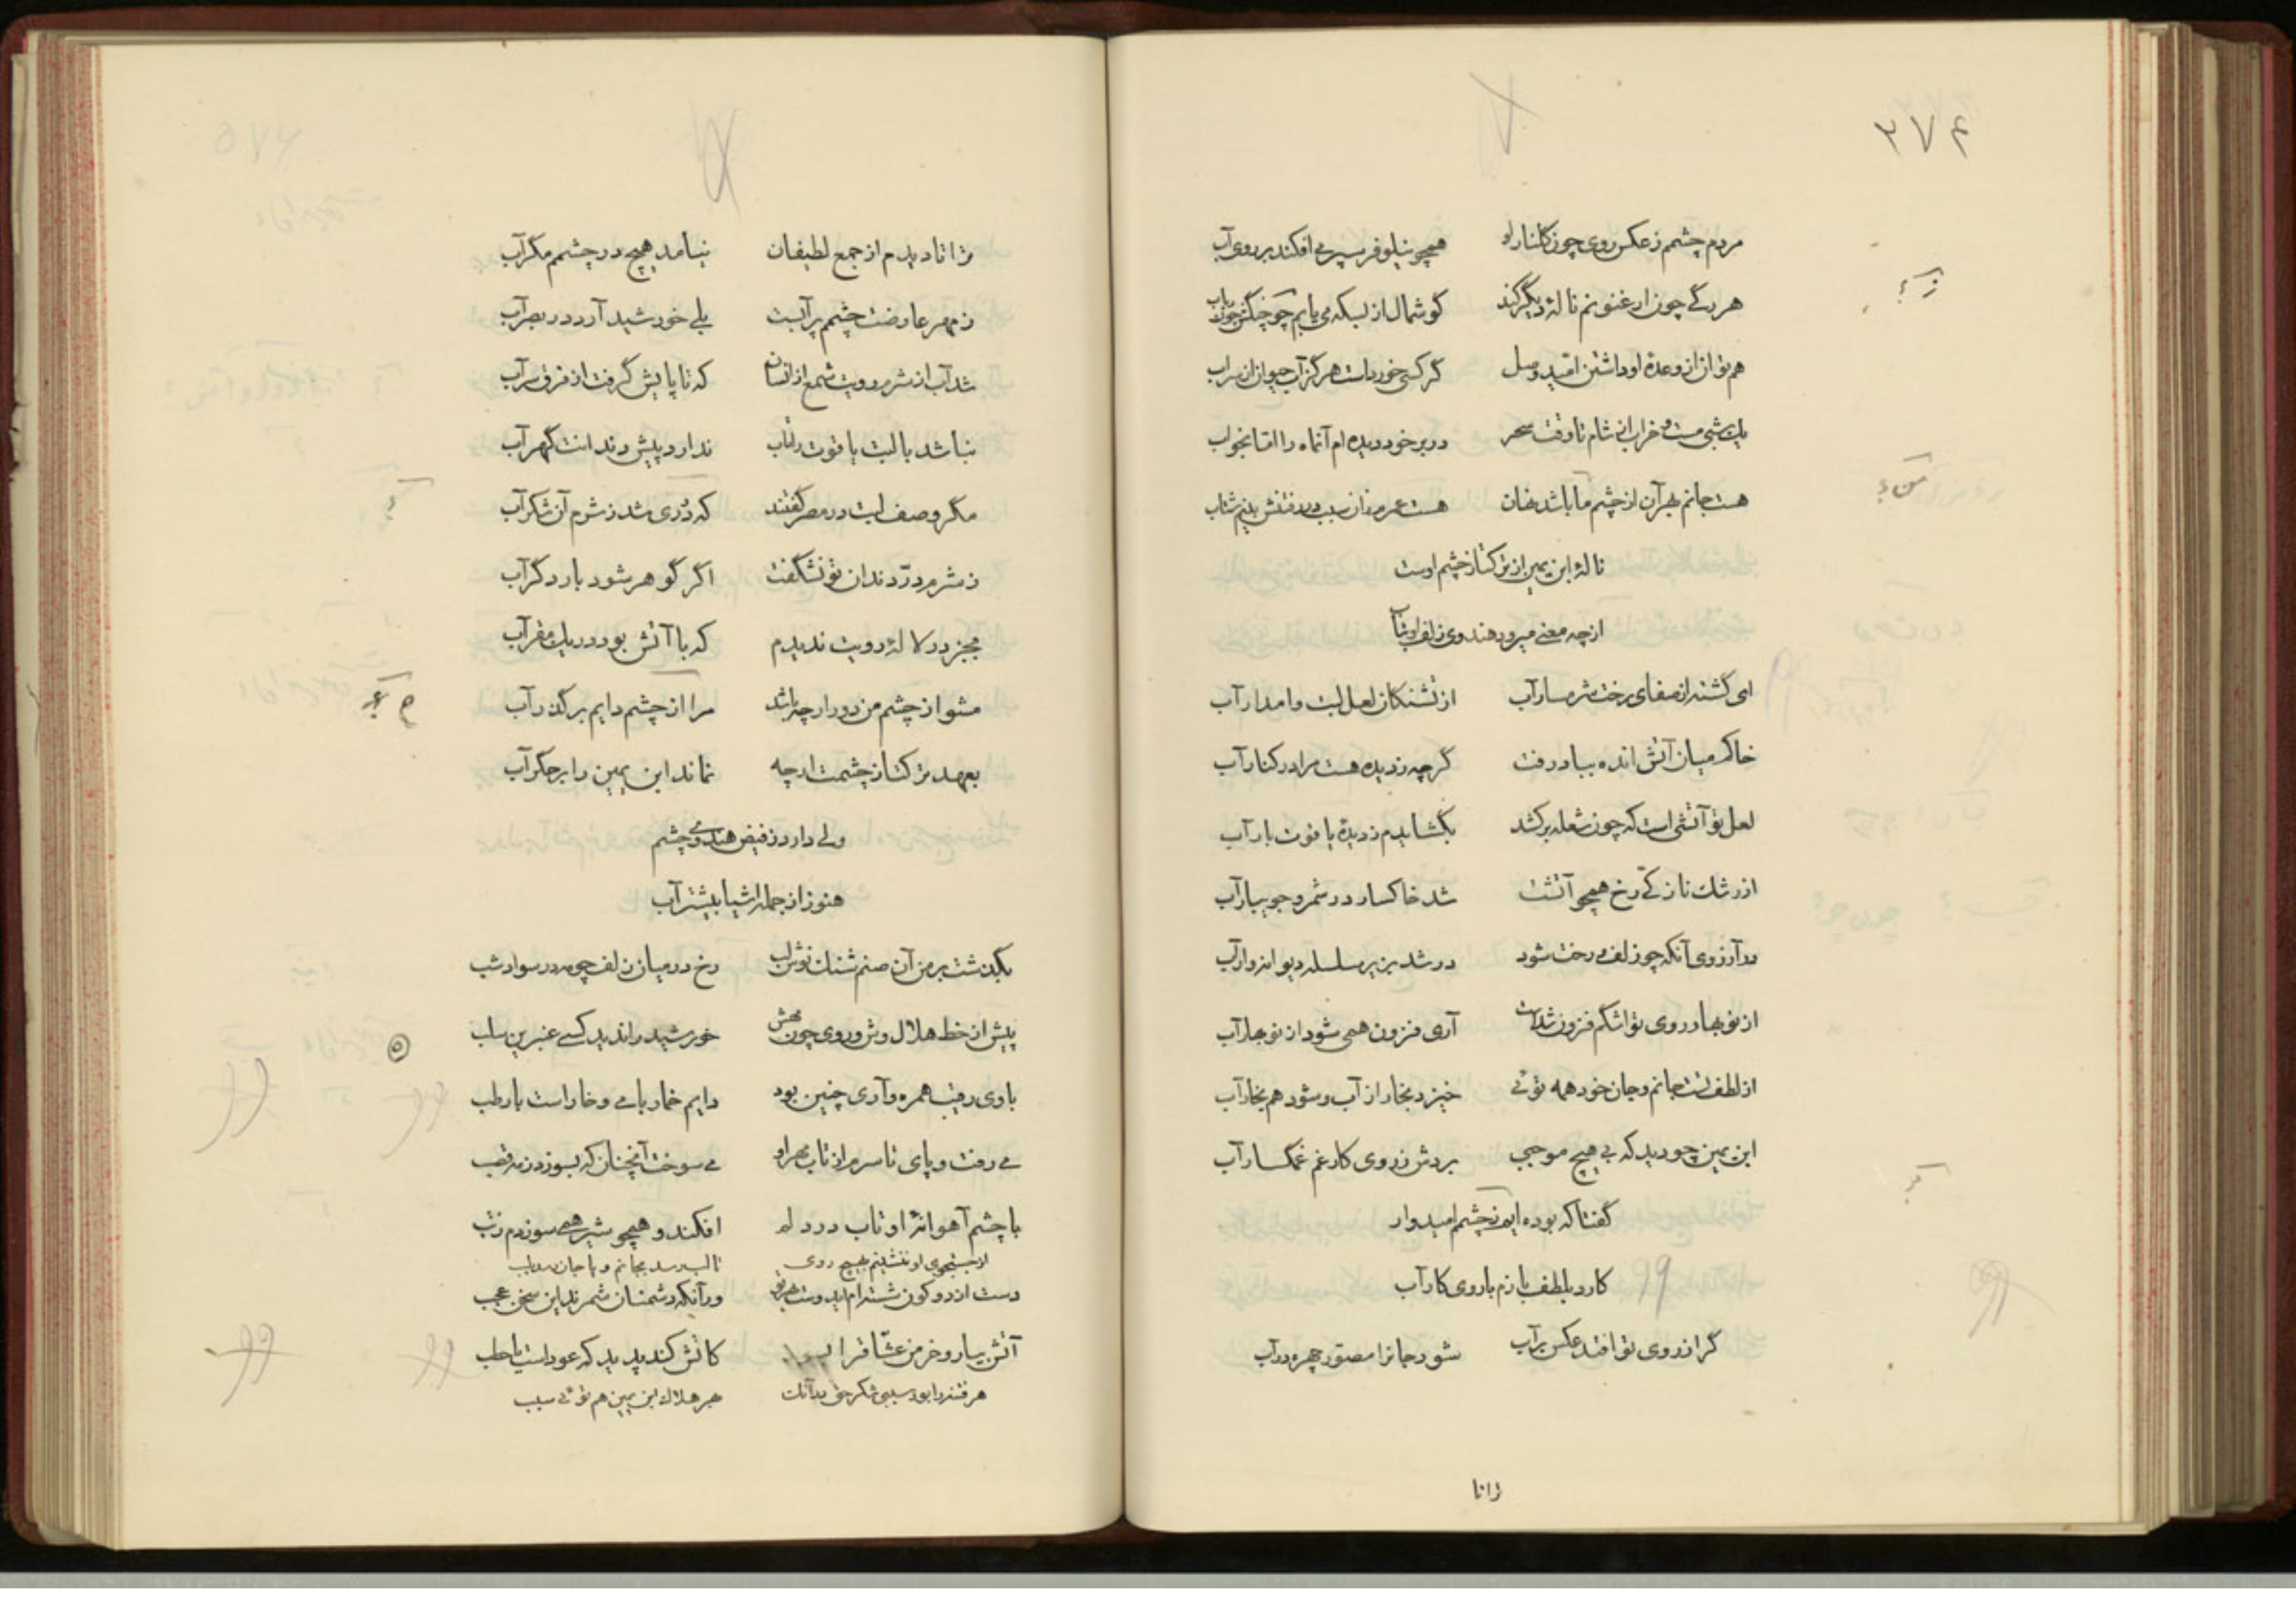 ۳۷۴
مردم چشم ز عکس روی چون گلنار او همچو نیلوفر سپر می افکند بر روی آب
هر رگی چون ارغنونم ناله دیگر کند گوشمال از بسکه می یابم چو چنگش چون رباب
هم توان از وعدهٔ او داشتن امید وصل گر کسی خوردست هرگز آب حیوان از سراب
یک شبی مست و خراب از شام تا وقت سحر در بر خود دیده ام آنماه را اما بخواب
هست جانم بهر آن از چشم ما باشد نهان هست عمر من از آن سبب در رفتنش بینم شتاب
نالهٔ ابن یمین از ترکتاز چشم اوست
از چه معنی میرود هندوی زلف او بتاب
ای گشته از صفای رخت شرمسار آب از تشنگان لعل لبت وامدار آب
خاکم میان آتش انده بباد رفت گرچه ز دیده هست مرا در کنار آب
لعل تو آتشی است که چون شعله برکشد بگشایدم ز دیدهٔ یاقوت بار آب
از رشک نازکی رخ همچو آتشت شد خاکسار در شمر و جویبار آب
در آرزوی آنکه چو زلف و رخت شود در شد بزیر سلسله دیوانه وار آب
از نوبهار روی تو اشکم فزون شدست آری فزون همی شود از نوبهار آب
از لطف تست جانم و جان خود همه توئی خیزد بخار از آب و شود هم بخار آب
ابن یمین چو دید که بی هیچ موجبی بردش ز روی کار غم غمگسار آب
گفتا که بوده ایم ز چشم امیدوار
کارد بلطف بازم با روی کار آب
گر از روی تو افتد عکس بر آب شود جانرا مصور چهره در آب
ترا تا
ترا تا دیدم از جمع لطیفان نیامد هیچ در چشمم مگر آب
ز مهر عارضت چشمم پر آبست بلی خورشید آرد در بصر آب
شد آب از شرم رویت شمع از انسان که تا پایش گرفت از فرق سر آب
نباشد با لبت یاقوت را تاب ندارد پیش دندانت گهر آب
مگر وصف لبت در مصر گفتند که دردی شد ز شرم آن شکر آب
ز شرم در دندان تو نشگفت اگر گوهر شود بار دگر آب
بجز در لالهٔ رویت ندیدم که با آتش بود در یک مقر آب
مشو از چشم من دور ار چه باشد مرا از چشم دایم بر گذر آب
بعهد ترکتاز چشمت ار چه نماند ابن یمین را بر جگر آب
ولی دارد ز فیض هندوی چشم
هنوز از جمله اشیا بیشتر آب
بگذشت بر من آن صنم شنگ نوش لب رخ در میان زلف چو مه در سواد شب
پیش از خط هلال وش و روی چون مهش خورشید را ندید کسی عنبرین سلب
با وی رقیب همره و آری چنین بود دایم خمار با می و خار است با رطب
می رفت و پای تا سرم از تاب مهر او می سوخت آنچنان که بسوزد ز مه قصب
با چشم آهوانهٔ او تاب در دلم افکند و همچو شیر همی سوزدم ز تب
از جستجوی او ننشینم بهیچ روی تا لب رسد بجانم و یا جان رسد بلب
دست از دو کون شسته ام ایدوست بهر تو ور آنکه دشمنان شمرند این سخن عجب
آتش بیار و خرمن عشاق را کاتش کند پدید که عود است یا حطب
هر فتنه را بود سببی شکر حق بدانک بهر هلاک ابن یمین هم توئی سبب